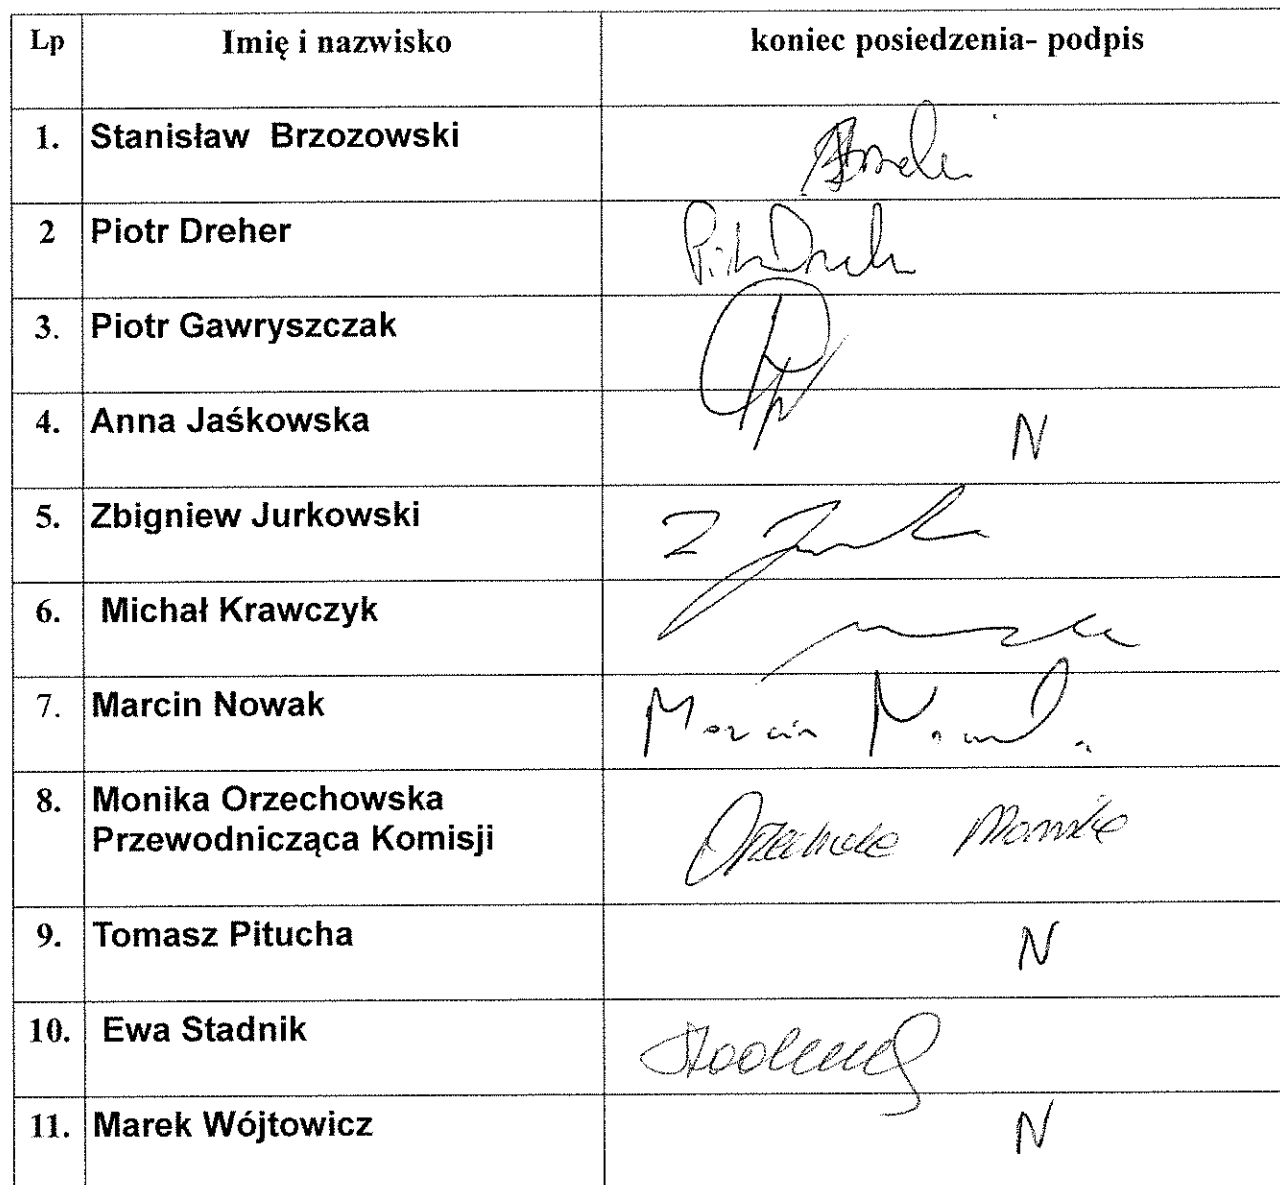 Lp Imię i nazwisko koniec posiedzenia- podpis
1. Stanisław Brzozowski
2 Piotr Dreher
3. Piotr Gawryszczak
4. Anna Jaśkowska N
5. Zbigniew Jurkowski
6. Michał Krawczyk
7. Marcin Nowak Marcin Nowak
8. Monika Orzechowska
Przewodnicząca Komisji
9. Tomasz Pitucha N
10. Ewa Stadnik
11. Marek Wójtowicz N